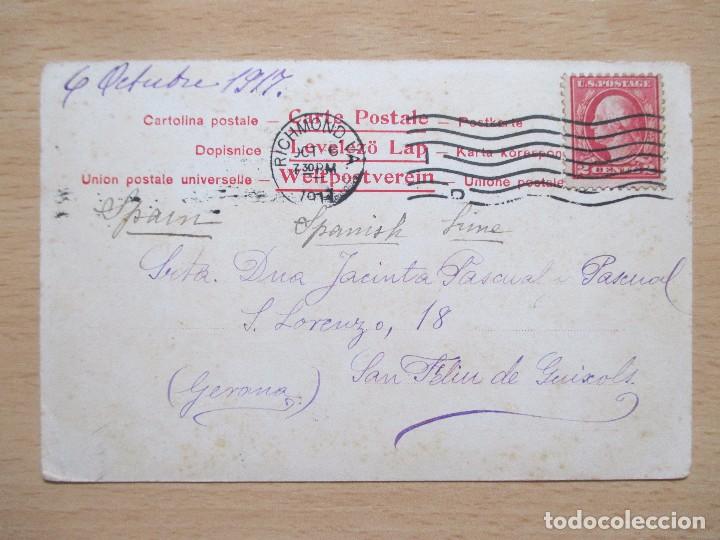 6 Octubre 1917.
U.S. POSTAGE
2 CENTS 2
Cartolina postale — Carte Postale — Postkarte
Dopisnice — Levelezö Lap — Karta korespon
Union postale universelle — Weltpostverein — Unione postale
RICHMOND, VA.
OCT 6
7 30 PM
1917
Spain Spanish Line
Srta. Dna Jacinta Pascual y Pascual
S. Lorenzo, 18
San Feliu de Guixols.
(Gerona)
todocoleccion